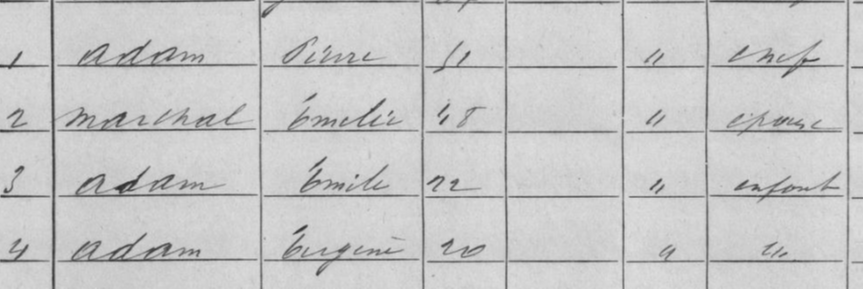 1 adam Pierre 51 " chef
2 marchal Émélie 48 " épouse
3 adam Émile 22 " enfant
4 adam Eugène 20 " "